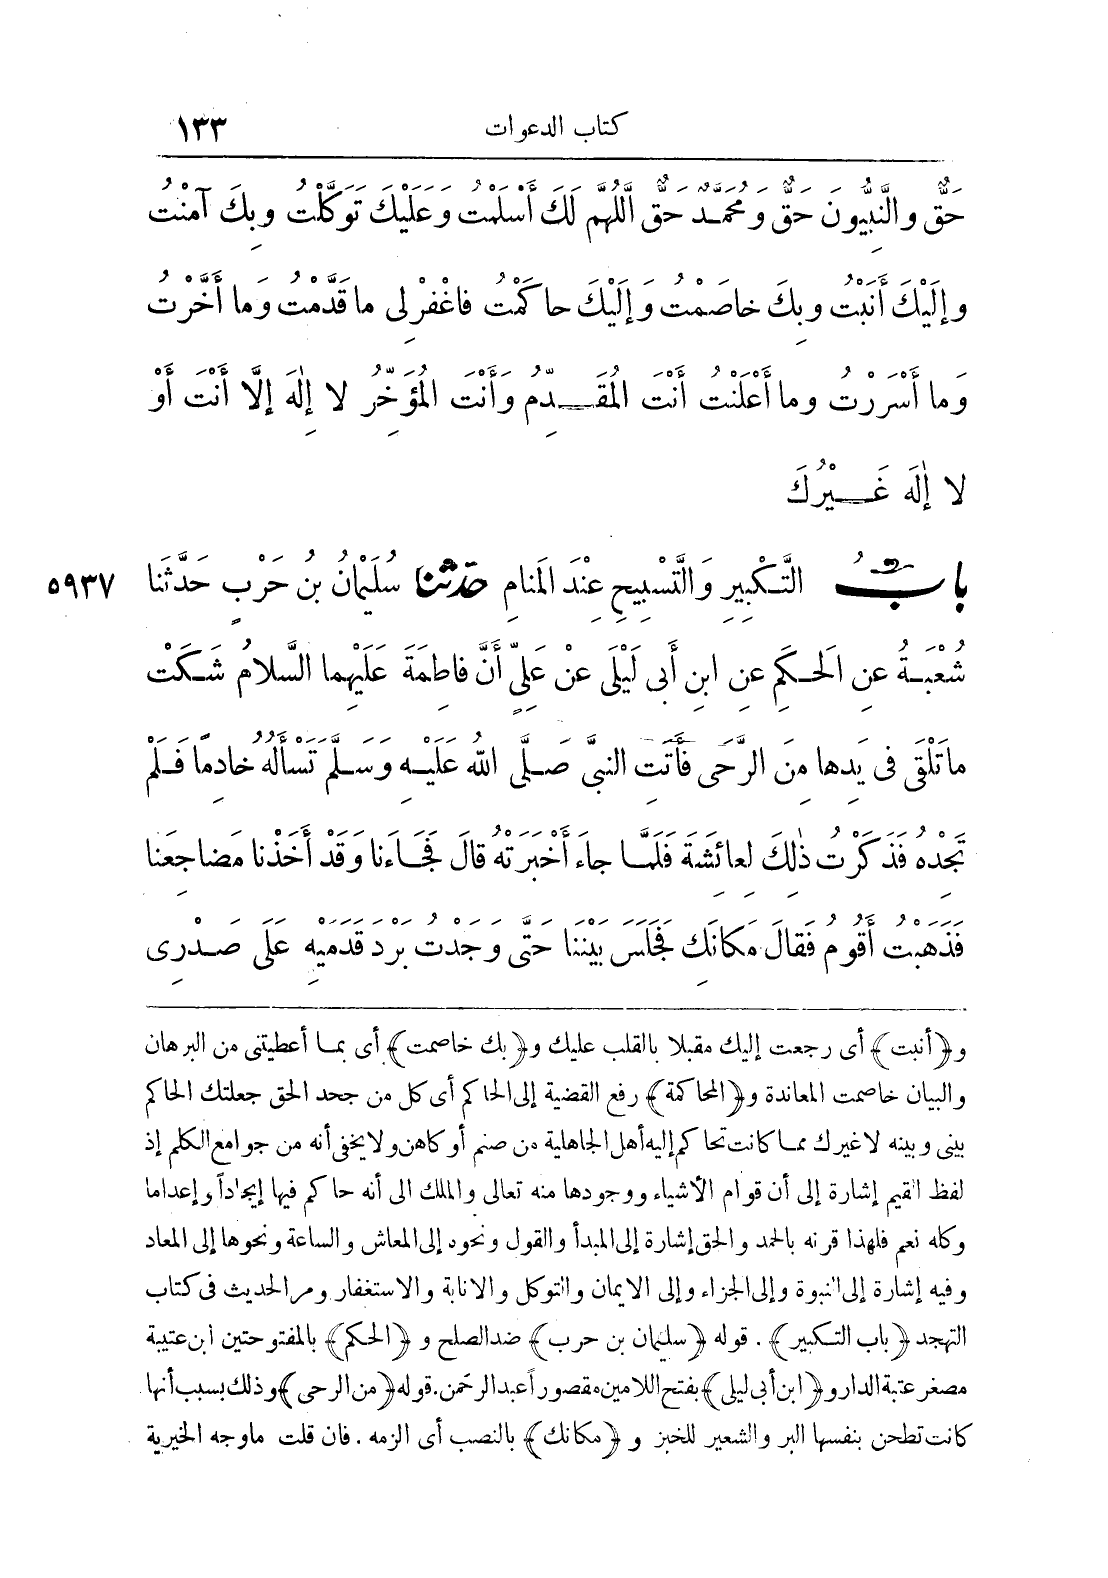 كتاب الدعوات ١٣٣
حَقٌّ والنَّبِيُّونَ حَقٌّ وَمُحَمَّدٌ حَقٌّ اللَّهُمَّ لَكَ أَسْلَمْتُ وَعَلَيْكَ تَوَكَّلْتُ وبِكَ آمَنْتُ
وإِلَيْكَ أَنَبْتُ وبِكَ خاصَمْتُ وَإِلَيْكَ حاكَمْتُ فاغْفِرْ لى ما قَدَّمْتُ وَما أَخَّرْتُ
وَما أَسْرَرْتُ وما أَعْلَنْتُ أَنْتَ المُقَدِّمُ وَأَنْتَ المُؤَخِّرُ لا إِلٰهَ إلَّا أَنْتَ أَوْ
لا إِلٰهَ غَيْرُكَ
بابُ التَّكْبِيرِ وَالتَّسْبِيحِ عِنْدَ المَنامِ حَدَّثَنا سُلَيْمانُ بنُ حَرْبٍ حَدَّثَنا ٥٩٣٧
شُعْبَةُ عنِ الحَكَمِ عنِ ابنِ أَبى لَيْلَى عنْ عَلِيٍّ أَنَّ فاطِمَةَ عَلَيْهِما السَّلامُ شَكَتْ
ما تَلْقَى فى يَدِها مِنَ الرَّحَى فأَتَتِ النبىَّ صَلَّى اللهُ عَلَيْهِ وَسَلَّمَ تَسْأَلُهُ خادِمًا فَلَمْ
تَجِدْهُ فَذَكَرَتْ ذٰلِكَ لِعائِشَةَ فَلَمَّا جاءَ أَخْبَرَتْهُ قالَ فَجَاءَنا وَقَدْ أَخَذْنا مَضاجِعَنا
فَذَهَبْتُ أَقُومُ فَقالَ مَكانَكِ فَجَلَسَ بَيْنَنا حَتَّى وَجَدْتُ بَرْدَ قَدَمَيْهِ عَلَى صَدْرِى
و﴿أنبت﴾ أى رجعت إليك مقبلا بالقلب عليك و﴿بك خاصمت﴾ أى بما أعطيتنى من البرهان
والبيان خاصمت المعاندة و﴿المحاكمة﴾ رفع القضية إلى الحاكم أى كل من جحد الحق جعلتك الحاكم
بينى وبينه لا غيرك مما كانت تحاكم إليه أهل الجاهلية من صنم أو كاهن ولا يخفى أنه من جوامع الكلم إذ
لفظ القيم إشارة إلى أن قوام الأشياء ووجودها منه تعالى والملك الى أنه حاكم فيها إيجاداً وإعداما
وكله نعم فلهذا قرنه بالحمد والحق إشارة إلى المبدأ والقول ونحوه إلى المعاش والساعة ونحوها إلى المعاد
وفيه إشارة إلى النبوة وإلى الجزاء وإلى الايمان والتوكل والانابة والاستغفار ومر الحديث فى كتاب
التهجد ﴿باب التكبير﴾ . قوله ﴿سليمان بن حرب﴾ ضد الصلح و ﴿الحكم﴾ بالمفتوحتين ابن عتيبة
مصغر عتبة الدار و﴿ابن أبى ليلى﴾ بفتح اللامين مقصوراً عبد الرحمن. قوله ﴿من الرحى﴾ وذلك بسبب أنها
كانت تطحن بنفسها البر والشعير للخبز و ﴿مكانك﴾ بالنصب أى الزمه . فان قلت ماوجه الخيرية